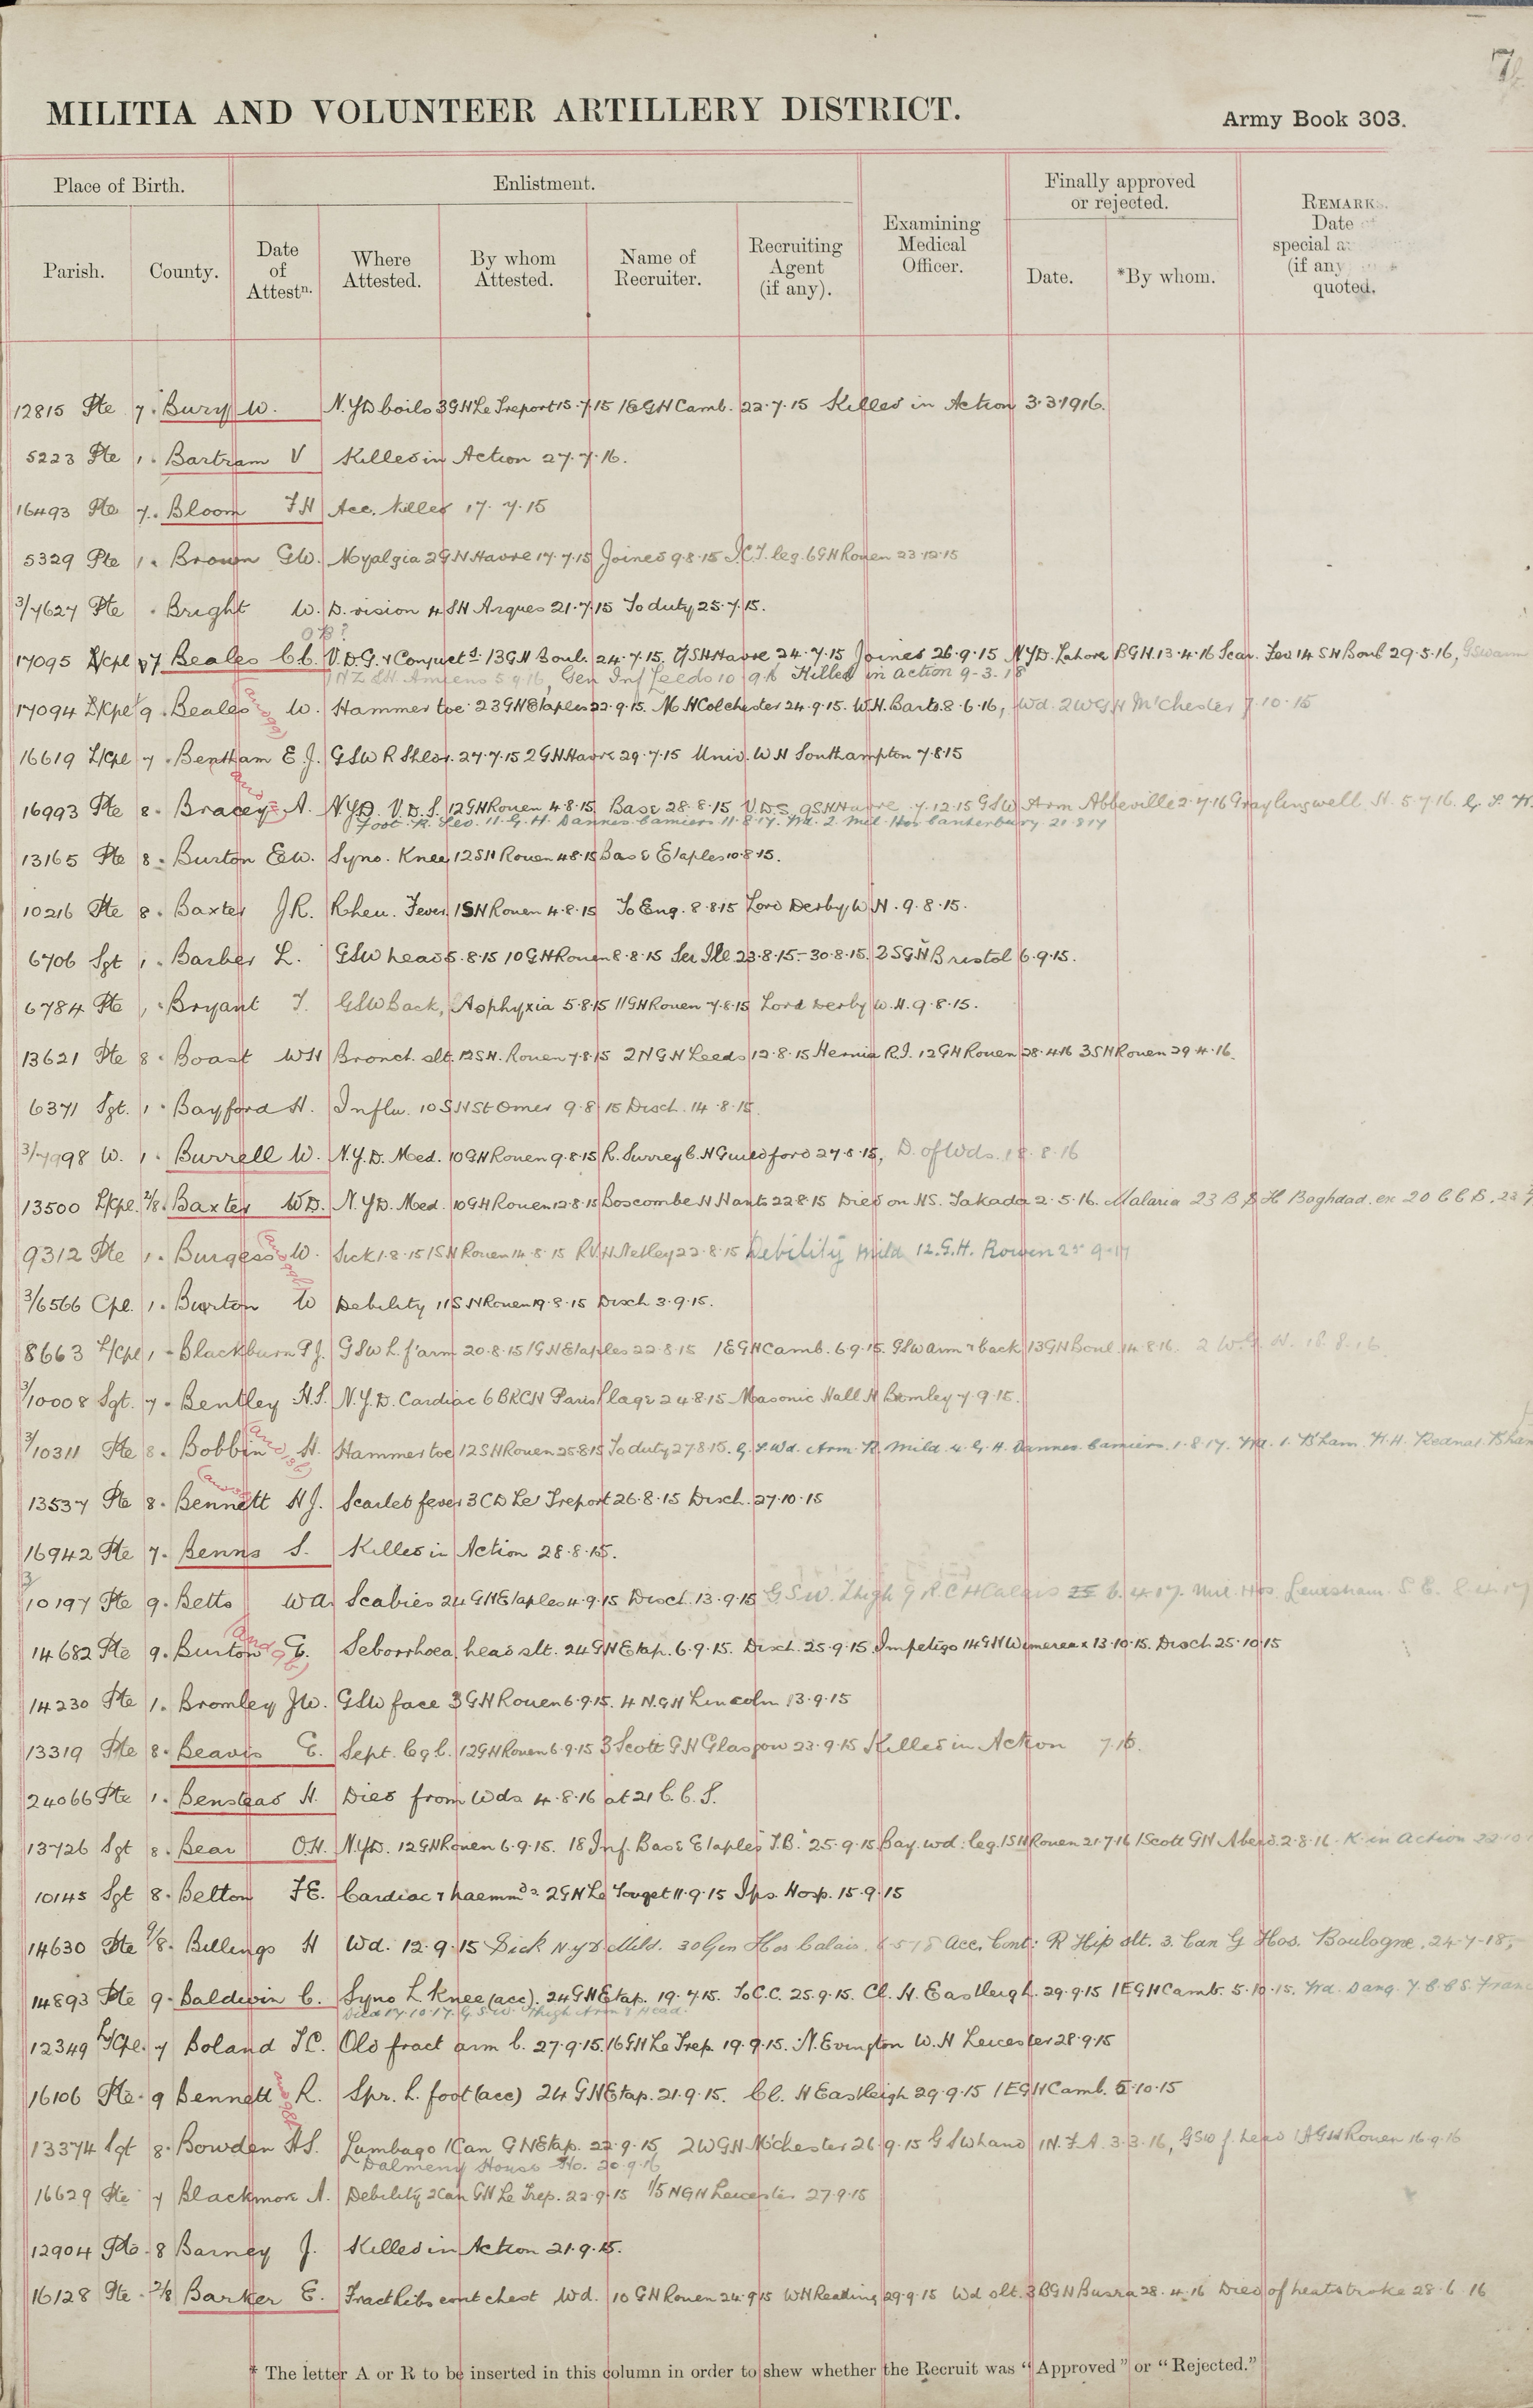 7
MILITIA AND VOLUNTEER ARTILLERY DISTRICT.
Army Book 303.
Place of Birth.
Enlistment.
Examining Medical Officer.
Finally approved or rejected.
REMARKS.
Date of
special a
(if any
quoted.
Parish.
County.
Date of Attestn.
Where Attested.
By whom Attested.
Name of Recruiter.
Recruiting Agent (if any).
Date.
*By whom.
12815 Pte 7. Bury W. N.Y.D boils 3GH Le Treport 15.7.15 1EGH Camb. 22.7.15 Killed in Action 3.3.1916.
5223 Pte 1. Bartram V Killed in Action 27.7.16.
16493 Pte 7. Bloom F H Acc. Killed 17.7.15
5329 Pte 1. Brown G.W. Myalgia 2GH Havre 17.7.15 Joined 9.8.15 I.C.T. leg. 6GH Rouen 23.12.15
3/7627 Pte . Bright W. D. vision 4SH Arques 21.7.15 To duty 25.7.15.
OB?
17095 L/Cpl 7 Beales C.C. V.D.G. & Conjuctd. 13GH Boul. 24.7.15, 9SH Havre 24.7.15 Joined 26.9.15 NYD. Lahore BGH. 13.4.16 Scar. Fev 14SH Boul 29.5.16,
Amiens 5.9.16, Gen Inf Leeds 10.9.16 Killed in action 9-3.18
17094 L/Cpl 9. Beales W. Hammer toe 23GH Etaples 22.9.15. M H Colchester 24.9.15. W.H. Barts. 8.6.16, Wd. 2WGH M'Chester 7.10.15
16619 L/Cpl 7. Bentham E.J. GSW R Shldr. 27.7.15 2GH Havre 29.7.15 Univ. W H Southampton 7.8.15
16993 Pte 8. Bracey A. N.Y.D. V.D.S. 12GH Rouen 4.8.15 Base 28.8.15 V.D.S. 9SH Havre 7.12.15 GSW Arm Abbeville 2.7.16 Graylingwell H. 5.7.16. G.S.W.
Foot. R. Sev. 11.G.H. Dannes Camiers 11.8.17. 2. Mil. Hos Canterbury 21.8.17
13165 Pte 8. Burton E.W. Syno. Knee 12SH Rouen 4.8.15 Base Etaples 10.8.15.
10216 Pte 8. Baxter J.R. Rheu. Fever 1SH Rouen 4.8.15 To Eng. 8.8.15 Lord Derby W H. 9.8.15.
6706 Sgt 1. Barber L. GSW head 5.8.15 10GH Rouen 8.8.15 Ser Ill. 23.8.15-30.8.15. 2SGH Bristol 6.9.15.
6784 Pte 1. Bryant T. GSW Back, Asphyxia 5.8.15 11GH Rouen 7.8.15 Lord Derby W.H. 9.8.15.
13621 Pte 8. Boast WH Bronch. slt. 12SH. Rouen 7.8.15 2NGH Leeds 12.8.15 Hernia R.I. 12GH Rouen 28.4.16 3SH Rouen 29.4.16.
6371 Sgt. 1. Bayford H. Influ. 10SH St Omer 9.8.15 Disch. 14.8.15.
3/7998 W. 1. Burrell W. N.Y.D. Med. 10GH Rouen 9.8.15 R. Surrey C.H Guildford 27.8.15, D. of Wds. 18.8.16
13500 L/Cpl. 7/8. Baxter W.D. N.Y.D. Med. 10GH Rouen 12.8.15 Boscombe H Hants 22.8.15 Died on HS. Takada 2.5.16. Malaria 23 B S H Baghdad. ex 20 C C S.
9312 Pte 1. Burgess W. Sick 1.8.15 1SH Rouen 14.8.15 RVH Netley 22.8.15 Debility Mild 12.G.H. Rouen 25.9.17
3/6566 Cpl. 1. Burton W Debility 11SH Rouen 19.8.15 Disch 3.9.15.
8663 L/Cpl 1. Blackburn P.J. GSW L. f'arm 20.8.15 1GH Etaples 22.8.15 1EGH Camb. 6.9.15. GSW arm & back 13GH Boul 14.8.16. 2 W.G.H. 18.8.16.
3/10008 Sgt. 7. Bentley H.S. N.Y.D. Cardiac 6BRCH Paris Plage 24.8.15 Masonic Hall H Bromley 7.9.15.
3/10311 Pte 8. Bobbin H. Hammer toe 12SH Rouen 25.8.15 To duty 27.8.15. G.S.Wd. Arm. R. Mild. 4.G.H. Dannes Camiers. 1.8.17. 1. B'ham. W.H. Rednal. Bham
13537 Pte 8. Bennett H J. Scarlet fever 3CD Le Treport 26.8.15 Disch. 27.10.15
16942 Pte 7. Benns S. Killed in Action 28.8.15.
3/10197 Pte 9. Betts WA. Scabies 24GH Etaples 4.9.15 Disch. 13.9.15 GSW. Thigh 9 R.C H Calais 6.4.17. Mil. Hos Lewisham. S.E. 8.4.17
14682 Pte 9. Burton G. Seborrhoea head slt. 24GH Etap. 6.9.15. Disch. 25.9.15 Impetigo 14GH Wimereux 13.10.15. Disch 25.10.15
14230 Pte 1. Bromley J.W. GSW face 3GH Rouen 6.9.15. 4N.GH Lincoln 13.9.15
13319 Pte 8. Beavis E. Sept. leg l. 12GH Rouen 6.9.15 3 Scott GH Glasgow 23.9.15 Killed in Action 7.16.
24066 Pte 1. Benstead H. Died from Wds 4.8.16 at 21 C.C.S.
13726 Sgt 8. Bear O.H. N.Y.D. 12GH Rouen 6.9.15. 18 Inf. Base Etaples "T.B." 25.9.15 Bay. wd. leg. 1SH Rouen 21.7.16 1Scott GH Aberd. 2.8.16. K. in action 22.10
10145 Sgt 8. Belton F.E. Cardiac & haemmds. 2GH Le Touqet 11.9.15 Ips. Hosp. 15.9.15
14630 Pte 9/8. Billings H Wd. 12.9.15 Sick NYD Mild. 30 Gen Hos Calais. 6.5.18 Acc. Cont: R Hip slt. 3. Can G Hos. Boulogne. 24-7-18,
14893 Pte 9. Baldwin C. Syno L Knee (acc). 24GH Etap. 19.9.15. To C.C. 25.9.15. Cl. H. Eastleigh. 29.9.15 1EGH Camb. 5.10.15. Wd. Dang. 7.C.C.S. France
Died 17.10.17. G.S.W. Thigh Arm & Head.
12349 L/Cpl. 7 Boland T.C. Old fract arm l. 27.9.15. 16GH Le Trep. 19.9.15. N. Evington W.H Leicester 28.9.15
16106 Pte. 9 Bennett R. Spr. L. foot (acc) 24GH Etap. 21.9.15. Cl. H Eastleigh 29.9.15 1EGH Camb. 5.10.15
13374 Sgt 8. Bowden H S. Lumbago 1Can GH Etap. 22.9.15 2WGH M'chester 26.9.15 GSW hand 1N.F.A. 3.3.16, GSW f. head 1AGH Rouen 16.9.16
Dalmeny House Ho. 20.9.16
16629 Pte 7 Blackmore A. Debility 2Can GH Le Trep. 22.9.15 1/5NGH Leicester 27.9.15
12904 Pte. 8 Barney J. Killed in Action 21.9.15.
16128 Pte. 7/8 Barker E. Fract Ribs cont chest Wd. 10GH Rouen 24.9.15 WH Reading 29.9.15 Wd slt. 3BGH Busra 28.4.16 Died of heatstroke 28.6.16
* The letter A or R to be inserted in this column in order to shew whether the Recruit was "Approved" or "Rejected."